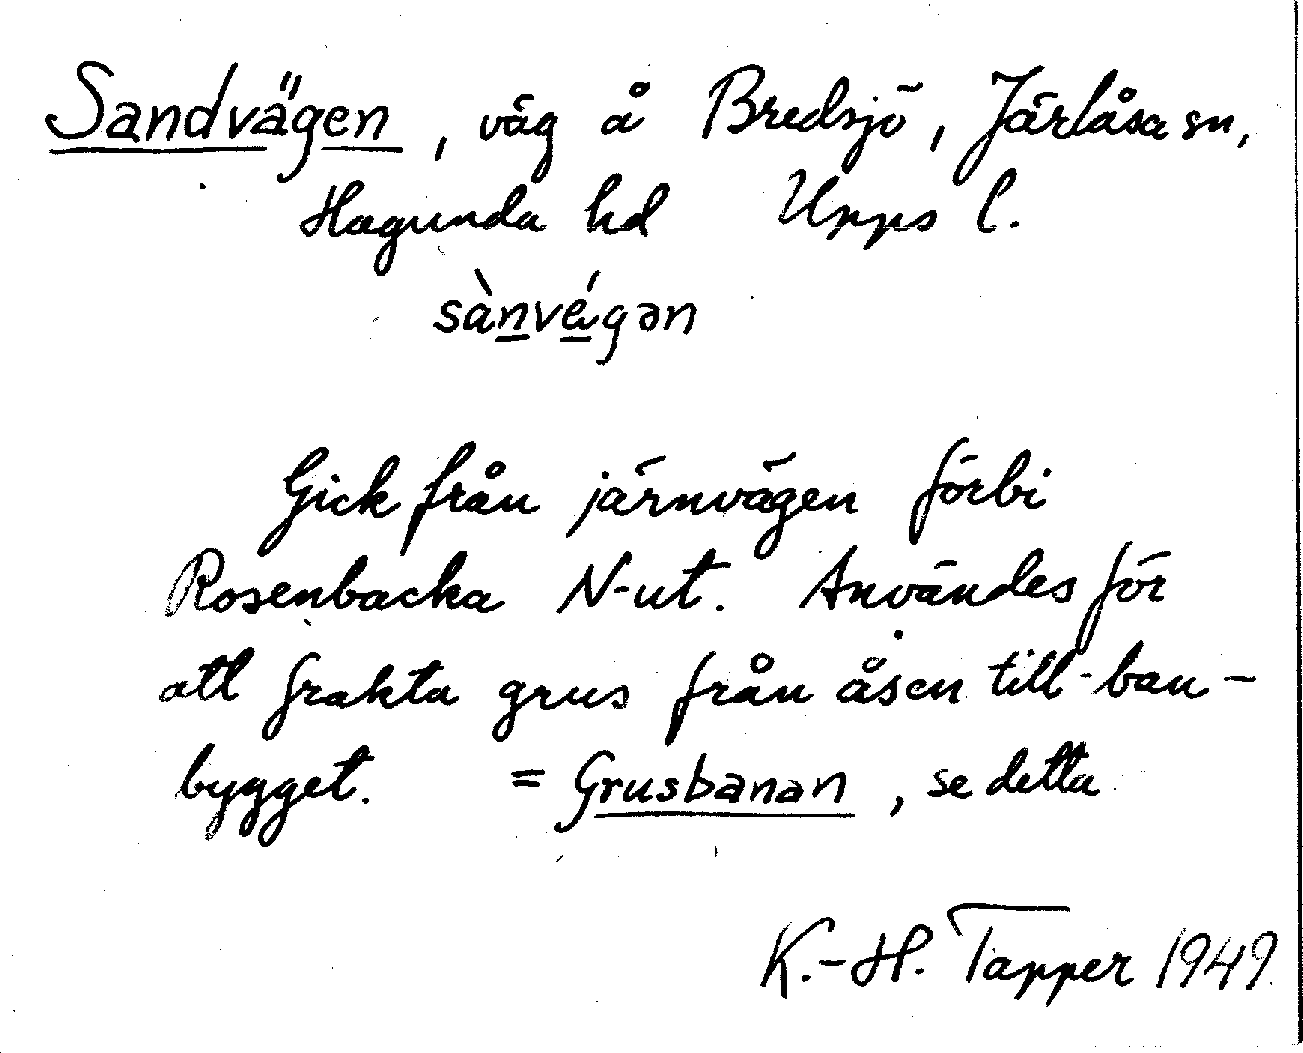 Sandvägen, väg å Bredsjö, Järlåsa sn,
Hagunda hd Upps l.
sànvę́gən
Gick från järnvägen förbi
Rosenbacka N-ut. Användes för
att frakta grus från åsen till ban-
bygget. = Grusbanan, se detta
K.-H. Tapper 1949